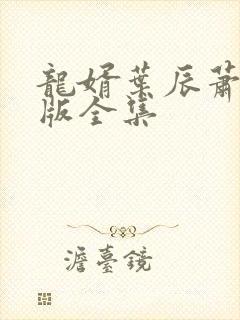 龍婿葉辰蕭
版全集
澹臺鏡